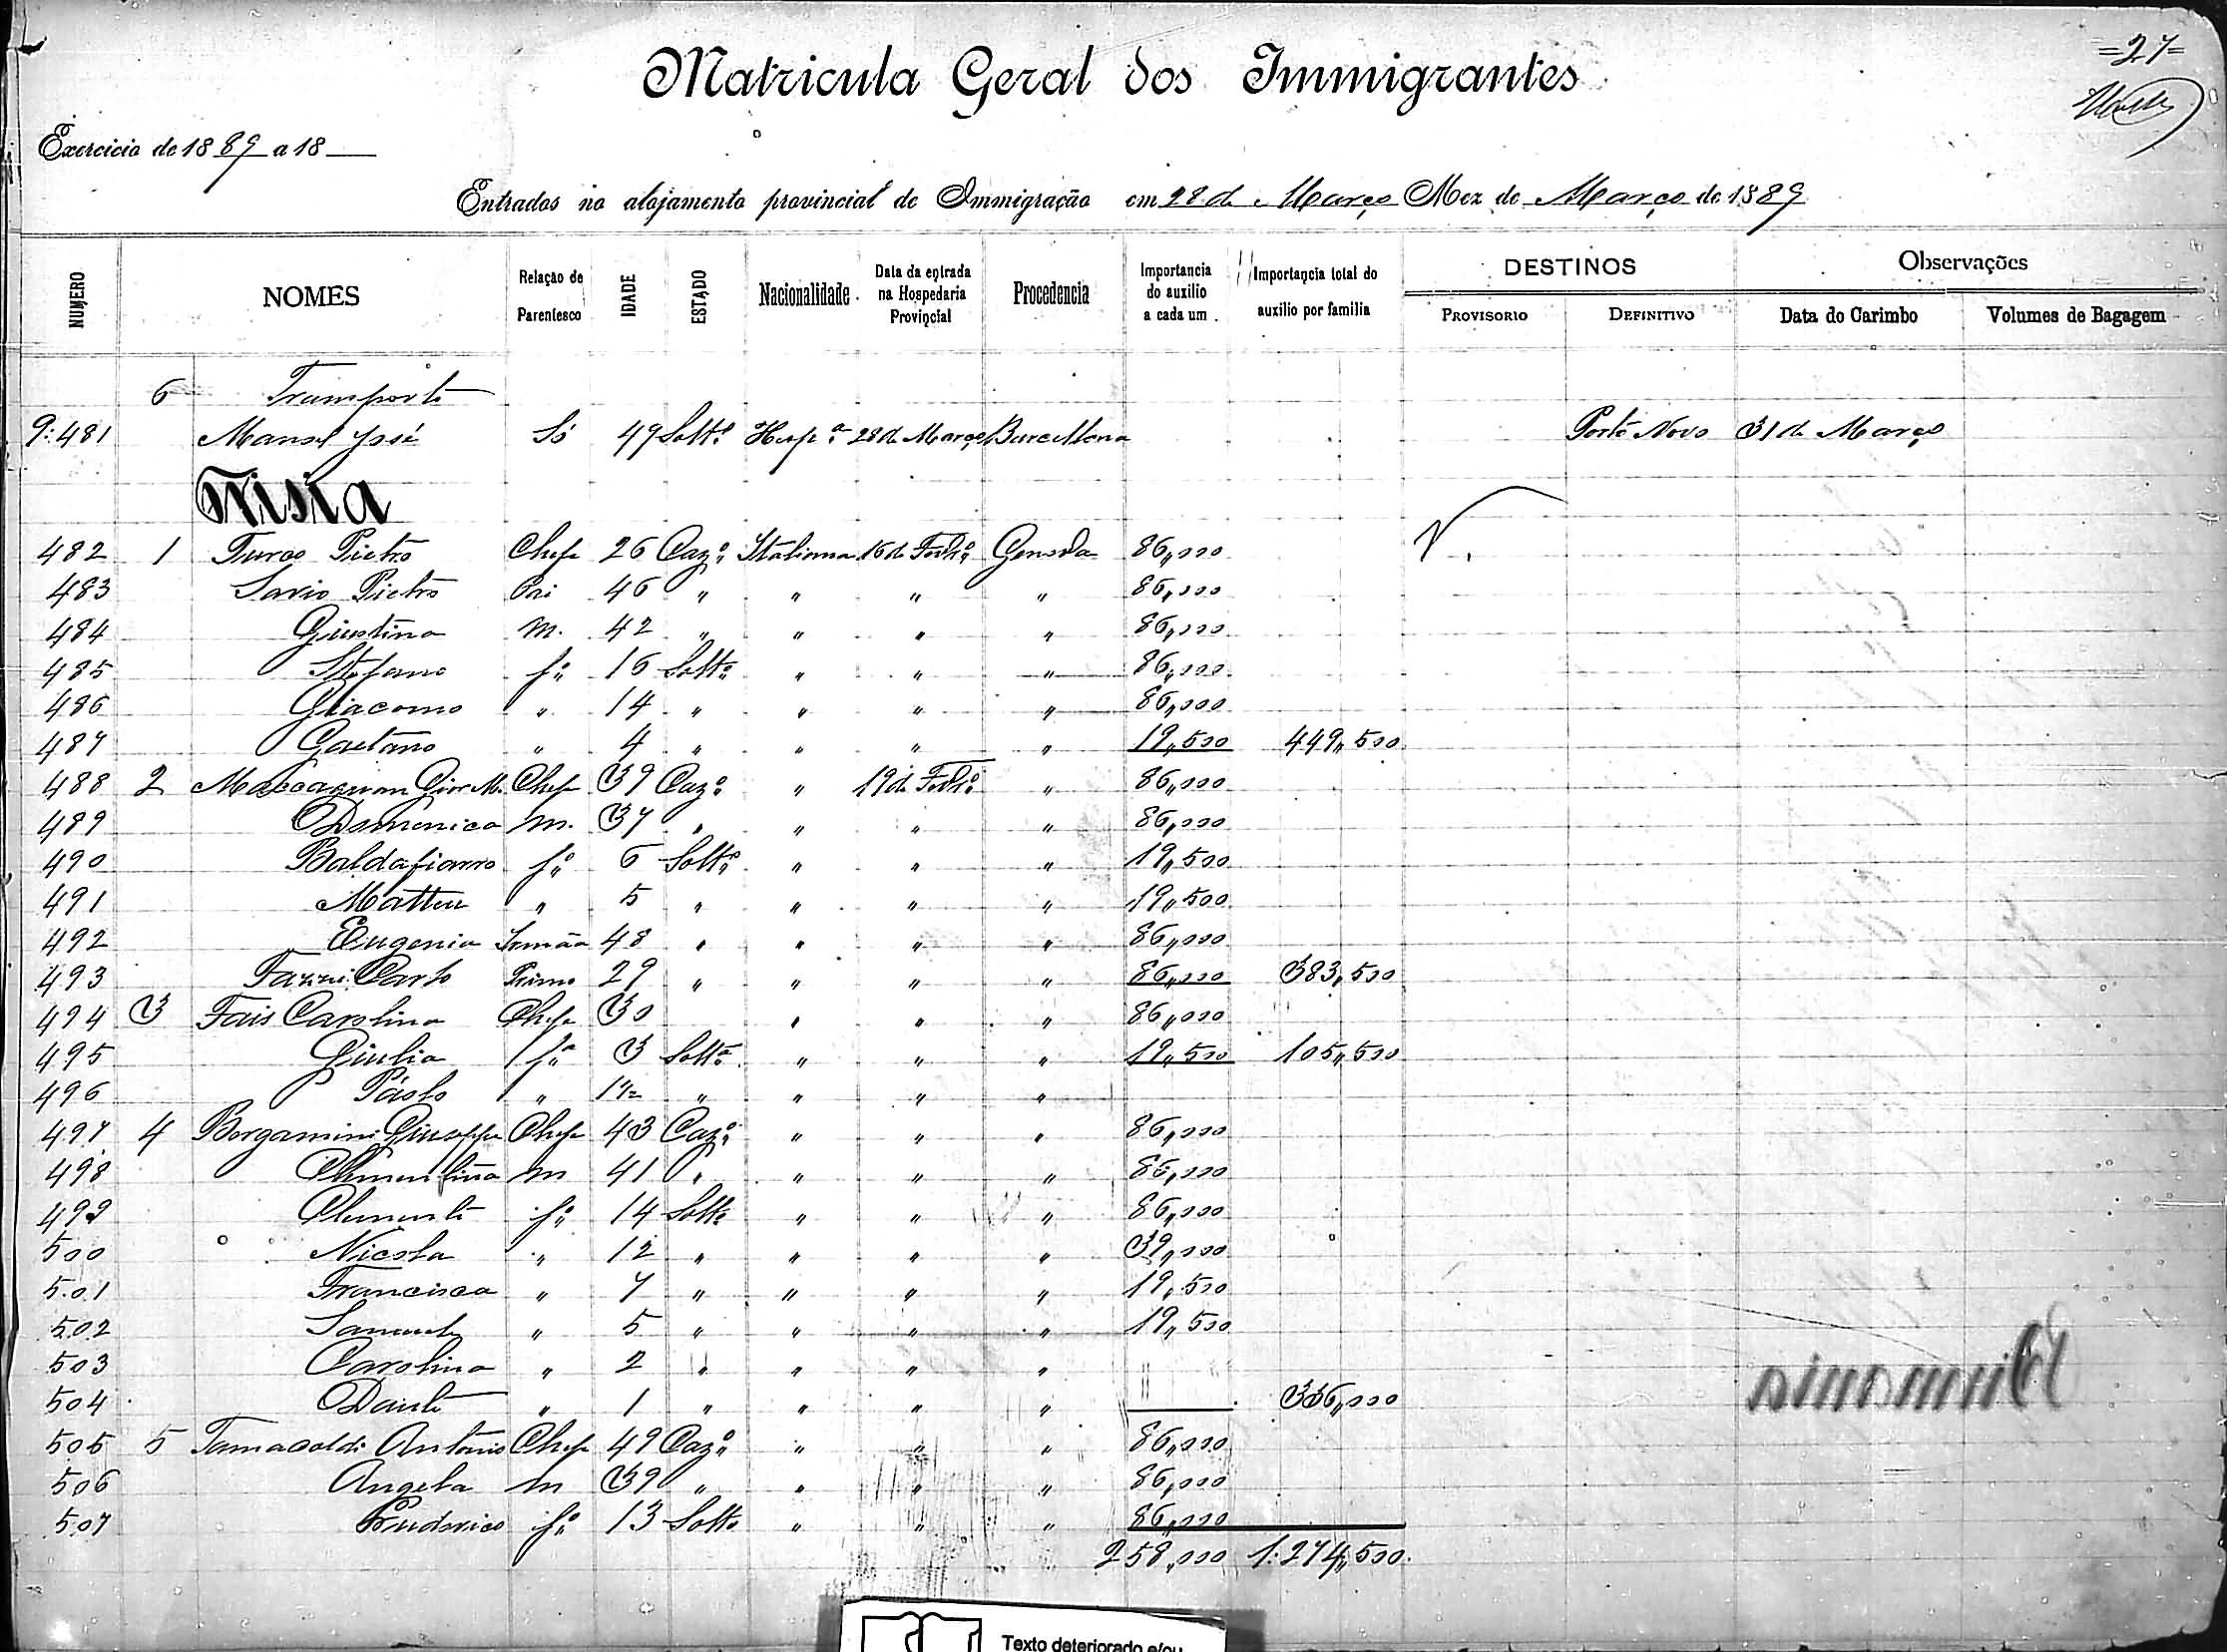 =27=
Matricula Geral dos Immigrantes
Exercicio de 1889 a 18
Entrados no alojamento provincial de Immigração em 28 de Março Mez de Março de 1889
NUMERO NOMES Relação de Parentesco IDADE ESTADO Nacionalidade Data da entrada na Hospedaria Provincial Procedencia Importancia do auxilio a cada um Importancia total do auxilio por familia DESTINOS PROVISORIO DEFINITIVO Observações Data do Carimbo Volumes de Bagagem
6 Transporte
9:481 Manoel José Só 49 Soltº Hespª 28 de Março Barcellona Porto Novo 31 de Março
Nisia
482 1 Turco Pietro Chefe 26 Cazº Italiana 16 de Febrº Genova 86,000
483 Savio Pietro Pai 46 " " " " 86,000
484 Giustina m. 42 " " " " 86,000
485 Stefano fº 16 Soltº " " " 86,000
486 Giacomo " 14 " " " " 86,000
487 Gaetano " 4 " " " " 19,500 449,500
488 2 Giov M. Chefe 39 Cazº " 19 de Febrº " 86,000
489 Domenica m. 37 " " " " 86,000
490 fº 6 Soltº " " " 19,500
491 Matteu " 5 " " " " 19,500
492 Eugenia Irmãa 48 " " " " 86,000
493 Carlo Primo 29 " " " " 86,000 383,500
494 3 Fais Carolina Chefe 30 " " " 86,000
495 Giulia fª 3 Soltª " " " 19,500 105,500
496 Páolo " 1 1/2 " " " "
497 4 Borgamini Giuseppe Chefe 43 Cazº " " " 86,000
498 Clementina m 41 " " " " 86,000
499 Clemente fº 14 Soltº " " " 86,000
500 Nicola " 12 " " " " 39,000
501 Francisca " 7 " " " " 19,500
502 Samuele " 5 " " " " 19,500
503 Carolina " 2 " " " "
504 Dante " 1 " " " " 336,000
505 5 Antonio Chefe 49 Cazº " " " 86,000
506 Angela m 39 " " " " 86,000
507 Ludovico fº 13 Soltº " " " 86,000
258,000 1:274,500
Texto deteriorado e/ou